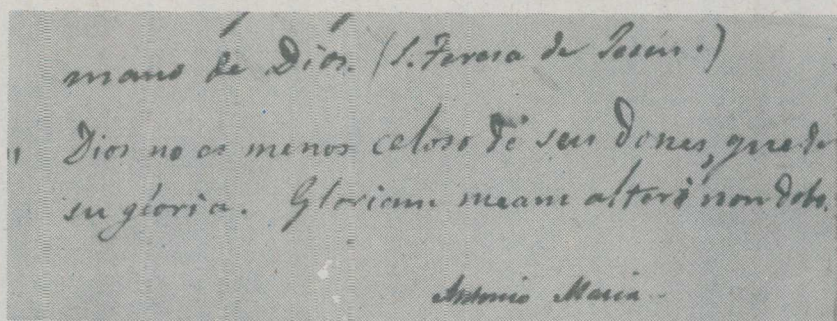 mano de Dios. (S. Teresa de Jesús.)
" Dios no es menos celoso de sus dones, que de
su gloria. Gloriam meam alteri non dabo.
Antonio María